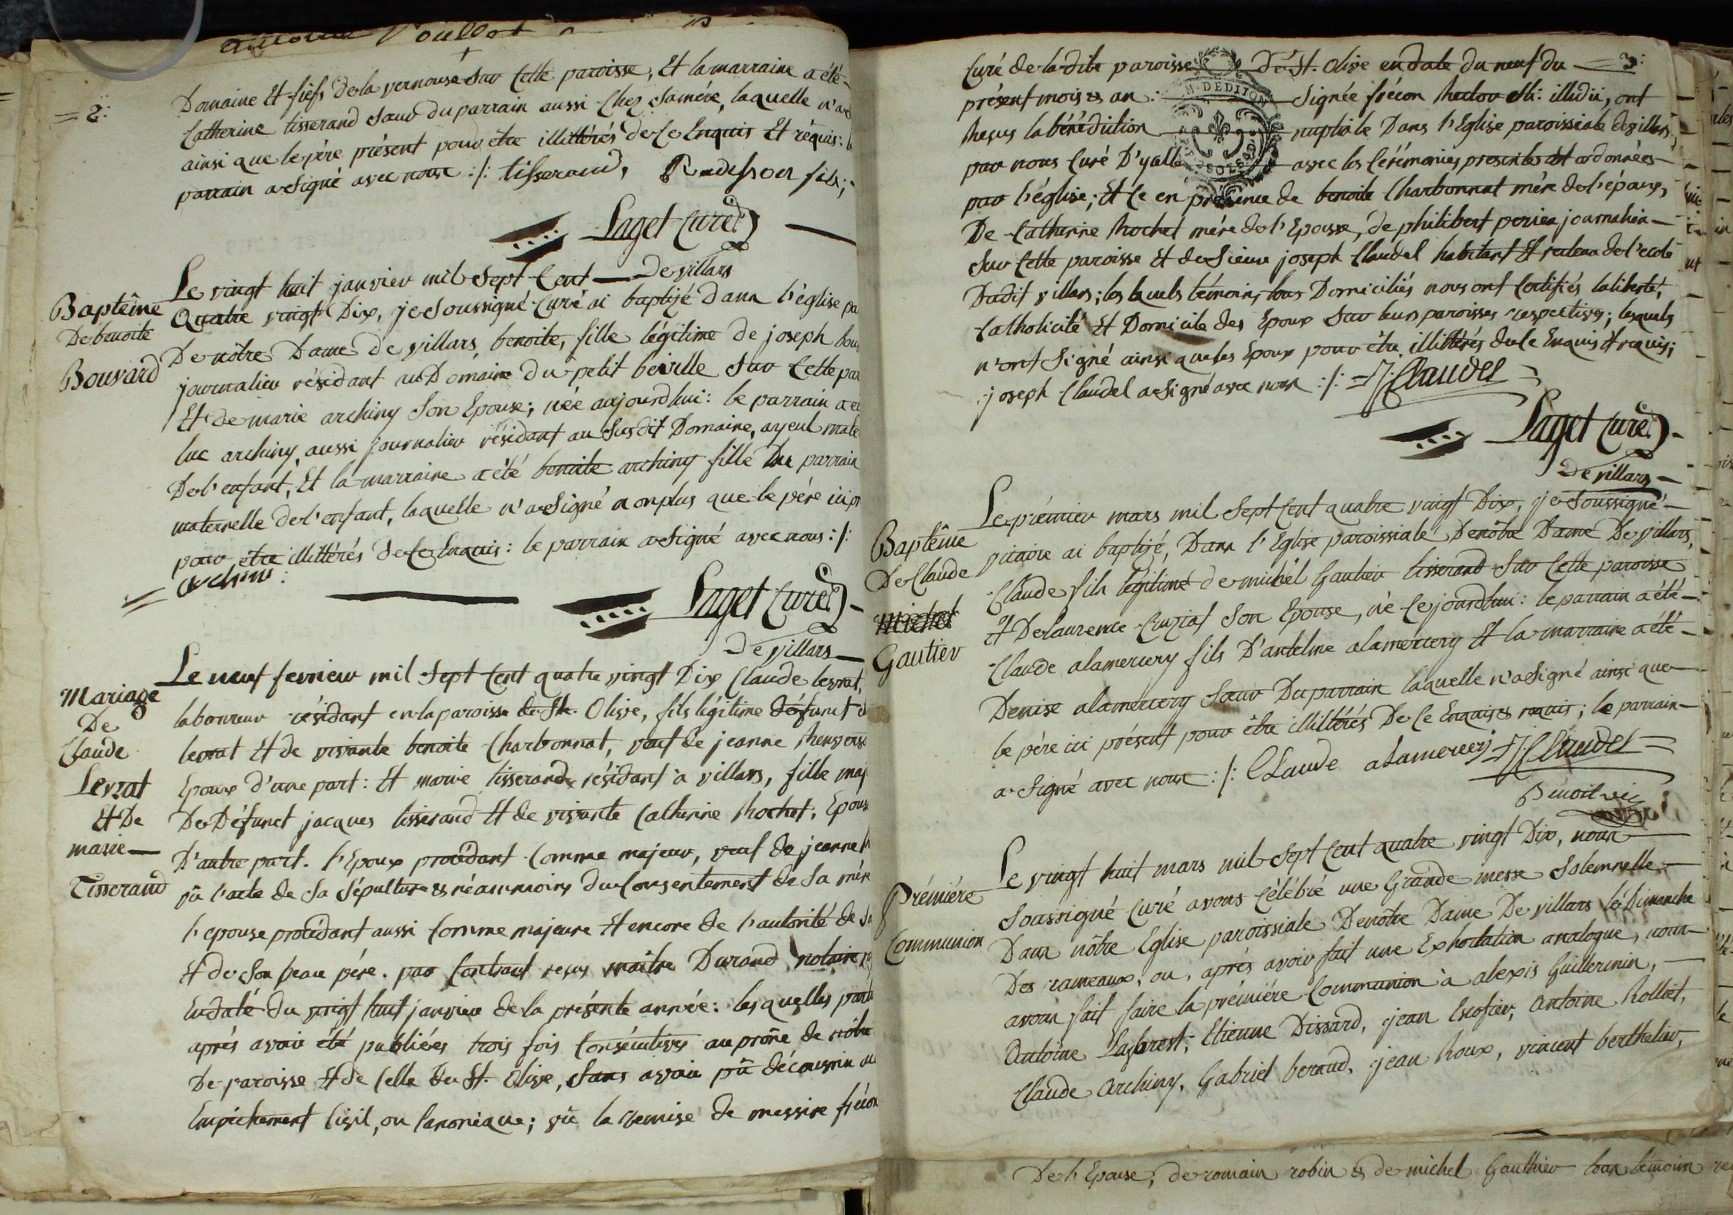 = 2:
Domaine et fiefs de la vernouse sur Cette paroisse, Et la marraine a été
Catherine tisserand sœur du parrain aussi Chez sa mére, laquelle n'a
ainsi que le pére présent pour être illittérés de Ce Enquis Et réquis:
parrain a signé avec nous :/: tisseraud, fils;
Laget Curé
de villars
Baptême
De benoite
Bouvard
Le vingt huit janvier mil Sept Cent
Quatre vingt Dix, je Soussigné Curé ai baptijé dans l'église pa
De nôtre Dame de villars, benoite, fille légitime de joseph bou
journalier résidant au Domaine du petit béville Sur Cette par
Et de marie archiny Son Epouse; née aujourdhui: le parrain a é
luc archiny aussi journalier résidant au Susdit Domaine, ayeul mate
De l'enfant, Et la marraine a été benoite archiny fille du parrain
maternelle de l'enfant, laquelle n'a Signé non plus que le pére ici p
pour être illittérés de Ce Enquis: le parrain a Signé avec nous :/:
= archini:
Laget Curé
de villars
Mariage
De
Claude
Levrat
Et De
marie
Tisserand
Le neuf fevrier mil Sept Cent quatre vingt Dix Claude levrat,
laboureur résidant en la paroisse de St. Olive, fils légitime défunt
levrat Et de vivante benoite Charbonnat, veuf de jeanne
Epoux d'une part: Et marie tisserand résidant à villars, fille maj
De Défunct jacques tisserand Et de vivante Catherine Rochet, Epous
D'autre part. l'Epoux procédant Comme majeur, veuf de jeanne
vû l'acte de Sa Sépulture et néanmoins du Consentement de Sa mér
l'epouse procédant aussi Comme majeure Et encore de l'autorité de Sa
Et de Son beau pére. par Contract reçus maître Durand notaire
En daté du vingt huit janvier de la présente année: lesquelles parti
aprés avoir été publiées trois fois Consécutives au prône de nôtre
De paroisse Et de Celle de St. Olive, Sans avoir pû découvrir au
Empêchement Civil, ou Canonique; vû la remise de messire frécon
Curé de la dite paroisse De St. Olive en date du neuf du
3:
présent mois et an: Signée frécon Ils ont
Reçus la bénédiction nuptiale Dans l'Eglise paroissiale de villars
par nous Curé D'y avec les Cérémonies prescrites Et ordonnées
par l'église; Et Ce en présence de benoite Charbonnat mére de l'époux,
De Catherine Rochet mére de l'Epouse, de philibert perier journalier
Sur Cette paroisse Et de Sieur joseph Claudel habitant Et recteur de l'ecole
Dudit villars; lesquels témoins tous Domiciliés nous ont Certifiés la liberté,
Catholicité Et Domicile des Epoux Sur leurs paroisses respectives; lesquels
n'ont Signé ainsi que les Epoux pour être illittérés de Ce Enquis Et requis;
joseph Claudel a Signé avec nous :/: = J. Claudel =
Laget Curé
de villars
Baptême
De Claude
Michel
Gautier
Le prémier mars mil Sept Cent quatre vingt Dix, je Soussigné
vicaire ai baptijé, Dans l'Eglise paroissiale De nôtre Dame De villars,
Claude fils légitime de michel Gautier tisserand Sur Cette paroisse
Et De laurence Cruziat Son Epouse, né Ce jourdhui: le parrain a été
Claude alamercery fils D'antelme alamercery Et la marraine a été
Denise alamercery Sœur Du parrain laquelle n'a Signé ainsi que
le pére ici présent pour être illittérés De Ce Enquis et requis; le parrain
a Signé avec nous :/: Claude alamercery = J. Claudel =
Benoit vic
Prémiére
Communion
Le vingt huit mars mil Sept Cent quatre vingt Dix, nous
Soussigné Curé avons Célébré une Grande messe Solemnelle
Dans nôtre Eglise paroissiale De nôtre Dame De villars le Dimanche
Des rameaux, ou, aprés avoir fait une Exhortation analogue, nous
avons fait faire la prémiére Communion à alexis Guillermin,
Antoine Lasbrest, Etienne Dissard, jean Escofier, Antoine Rollet,
Claude Archiny, Gabriel beraud, jean Roux, vincent berthelier,
De l'Epouse, de romain robin et de michel Gauthier tous témoins